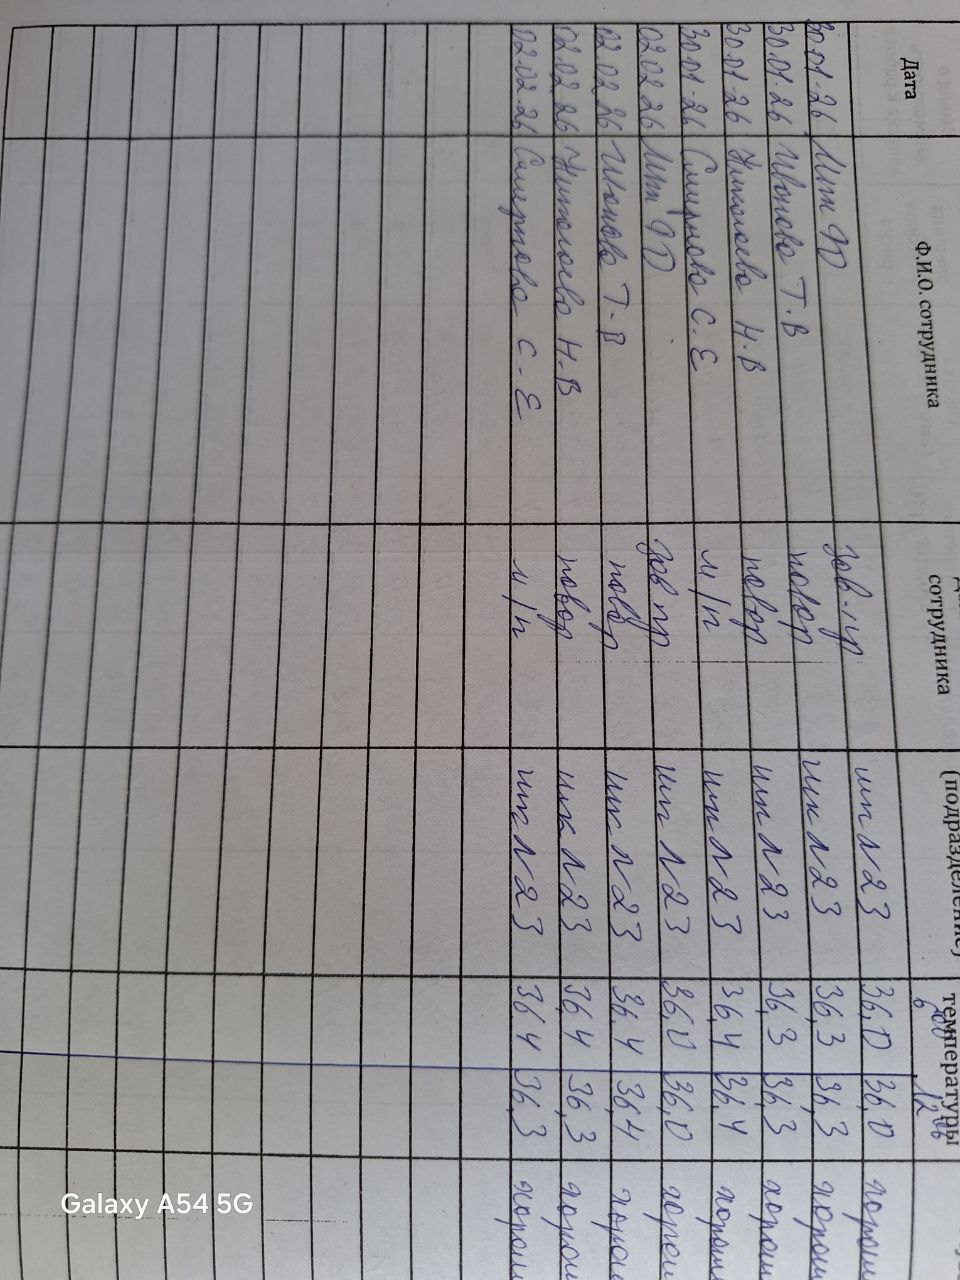 Дата Ф.И.О. сотрудника сотрудника (подразделение) температуры
6 00 12 00
30.01.26 Итт ЯД зав. пр шк N 23 36,0 36,0 хорош
30.01.26 Ионова Т.В повар шк N 23 36,3 36,3 хорош
30.01.26 Николаева Н.В повар шк N 23 36,3 36,3 хорош
30.01.26 Смирнова С.Е м/п шк N 23 36,4 36,4 хорош
02.02.26 зав пр шк N 23 36,0 36,0 хорош
02.02.26 Ионова Т.В повар шк N 23 36,4 36,4 хорош
02.02.26 Николаева Н.В повар шк N 23 36,4 36,3 хорош
02.02.26 Смирнова С.Е м/п шк N 23 36 4 36,3 хорош
Galaxy A54 5G